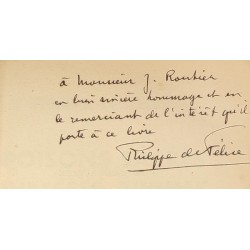 à Monsieur J. Roubier
en bien sincère hommage et en
le remerciant de l'intérêt qu'il
porte à ce livre
Philippe de Félice